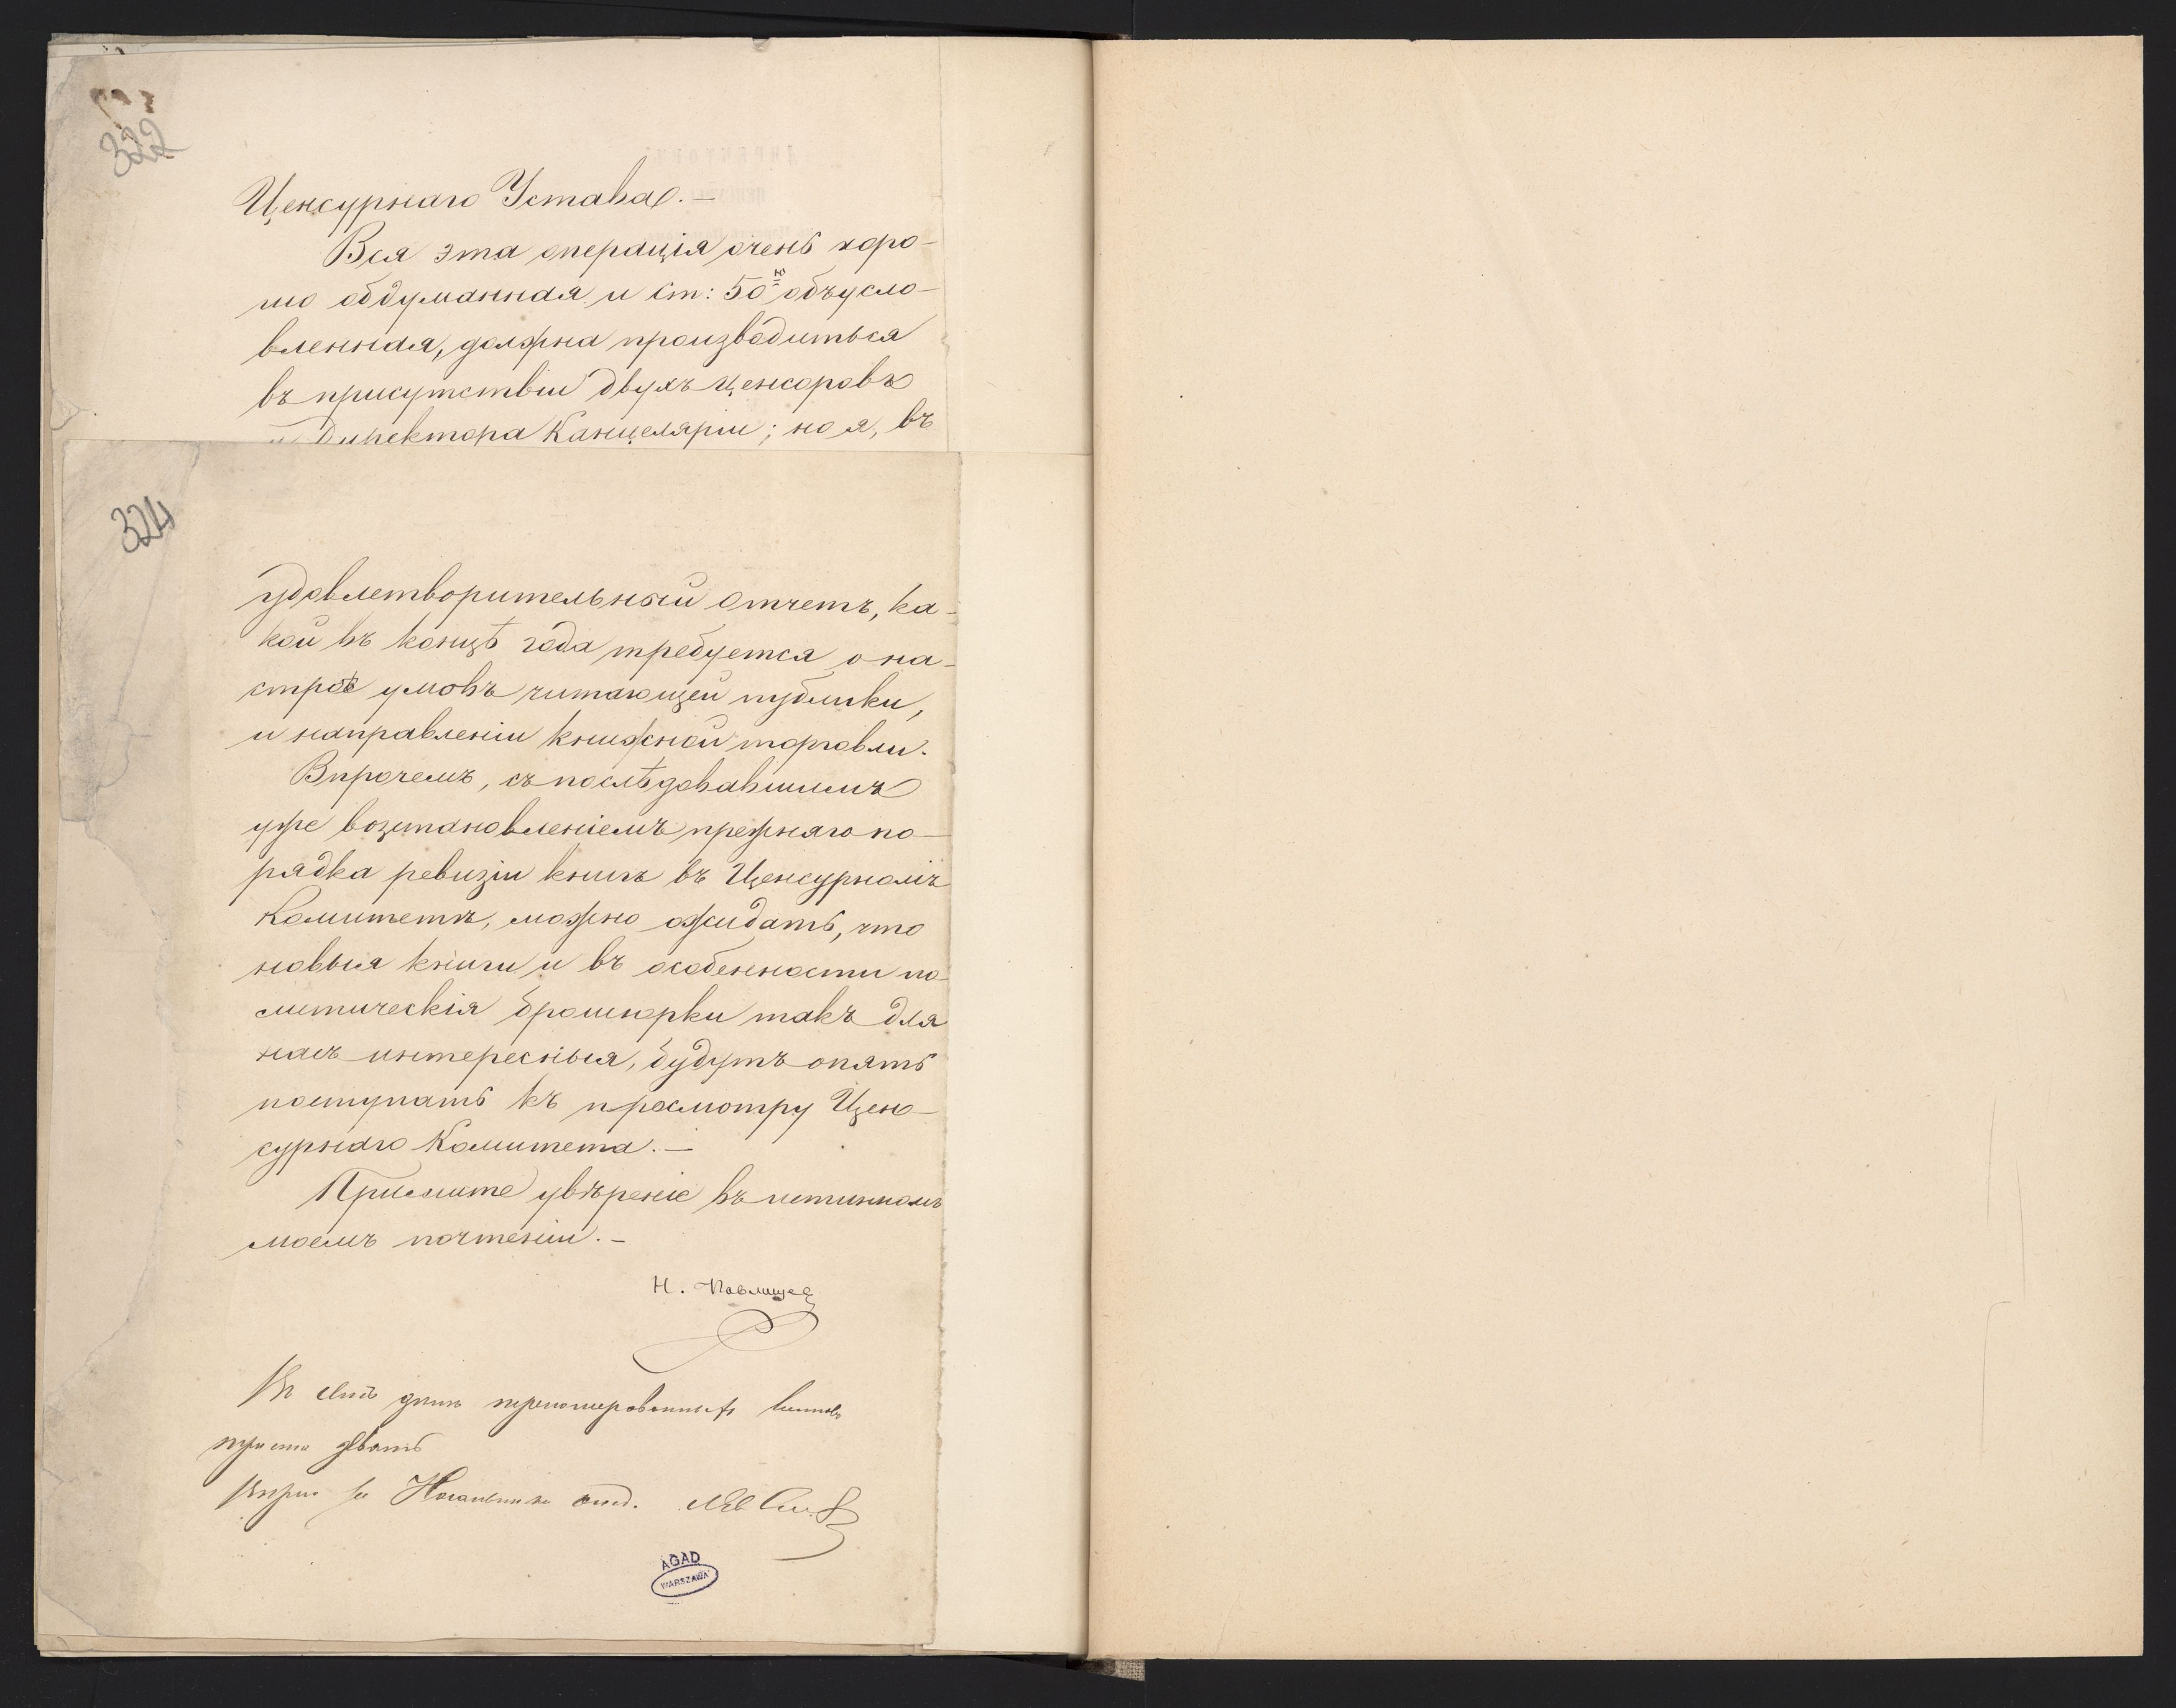 322
Ценсурнаго Устава. —
Вся эта операція очень хоро-
шо обдуманная и ст: 50ю объусло-
вленная, должна производиться
въ присутствіи двухъ ценсоровъ
и Директора Канцеляріи; но я, въ
324
удовлетворительный отчетъ, ка-
кой въ концѣ года требуется о на-
строѣ умовъ читающей публики,
и направленіи книжной торговли.
Впрочемъ, съ послѣдовавшимъ
уже возстановленіемъ прежняго по-
рядка ревизіи книгъ въ Ценсурномъ
Комитетѣ, можно ожидать, что
новыя книги и въ особенности по-
литическія брошюрки такъ для
насъ интересныя, будутъ опять
поступать къ просмотру Цен-
сурнаго Комитета. —
Примите увѣреніе въ истинномъ
моемъ почтеніи. —
Н. Павлищев
Въ семъ дѣлѣ пронумерованныхъ листовъ
триста девять
за Начальника отд.
AGAD
WARSZAWA